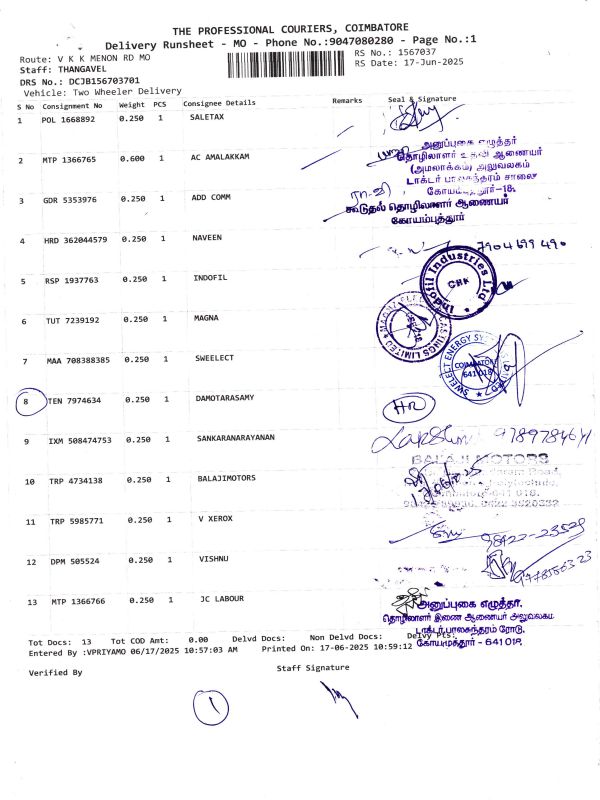 THE PROFESSIONAL COURIERS, COIMBATORE
Delivery Runsheet - MO - Phone No.:9047080280 - Page No.:1
Route: V K K MENON RD MO
RS No.: 1567037
Staff: THANGAVEL
RS Date: 17-Jun-2025
DRS No.: DCJB156703701
Vehicle: Two Wheeler Delivery
S No Consignment No Weight PCS Consignee Details Remarks Seal & Signature
1 POL 1668892 0.250 1 SALETAX
அனுப்புகை எழுத்தர்
தொழிலாளர் உதவி ஆணையர்
(அமலாக்கம்) அலுவலகம்
டாக்டர் பாலசுந்தரம் சாலை
கோயம்புத்தூர்-18.
2 MTP 1366765 0.600 1 AC AMALAKKAM
3 GDR 5353976 0.250 1 ADD COMM
கூடுதல் தொழிலாளர் ஆணையர்
கோயம்புத்தூர்
4 HRD 362044579 0.250 1 NAVEEN
7904699490
5 RSP 1937763 0.250 1 INDOFIL
Indofil Industries Ltd
CBE
6 TUT 7239192 0.250 1 MAGNA
MAGNA ELECTRO CASTINGS LIMITED
7 MAA 708388385 0.250 1 SWEELECT
SWELECT ENERGY SYSTEMS
COIMBATORE
641 018
8 TEN 7974634 0.250 1 DAMOTARASAMY
HR
9 IXM 508474753 0.250 1 SANKARANARAYANAN
10 TRP 4734138 0.250 1 BALAJIMOTORS
BALAJI MOTORS
11 TRP 5985771 0.250 1 V XEROX
98422-23529
12 DPM 505524 0.250 1 VISHNU
13 MTP 1366766 0.250 1 JC LABOUR
அனுப்புகை எழுத்தர்.
தொழிலாளர் இணை ஆணையர் அலுவலகம்
டாக்டர்.பாலசுந்தரம் ரோடு,
கோயமுத்தூர் - 641 018.
Tot Docs: 13 Tot COD Amt: 0.00 Delvd Docs: Non Delvd Docs: Delvy Pts:
Entered By :VPRIYAMO 06/17/2025 10:57:03 AM Printed On: 17-06-2025 10:59:12
Verified By Staff Signature
1